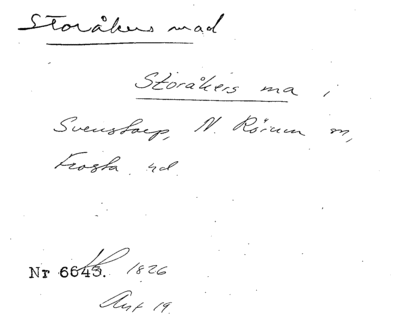 Storåkers mad
Storåkers ma i
Svenstorp, N. Rörum sn,
Frosta hd.
Nr 6643. 1826
Akt 19